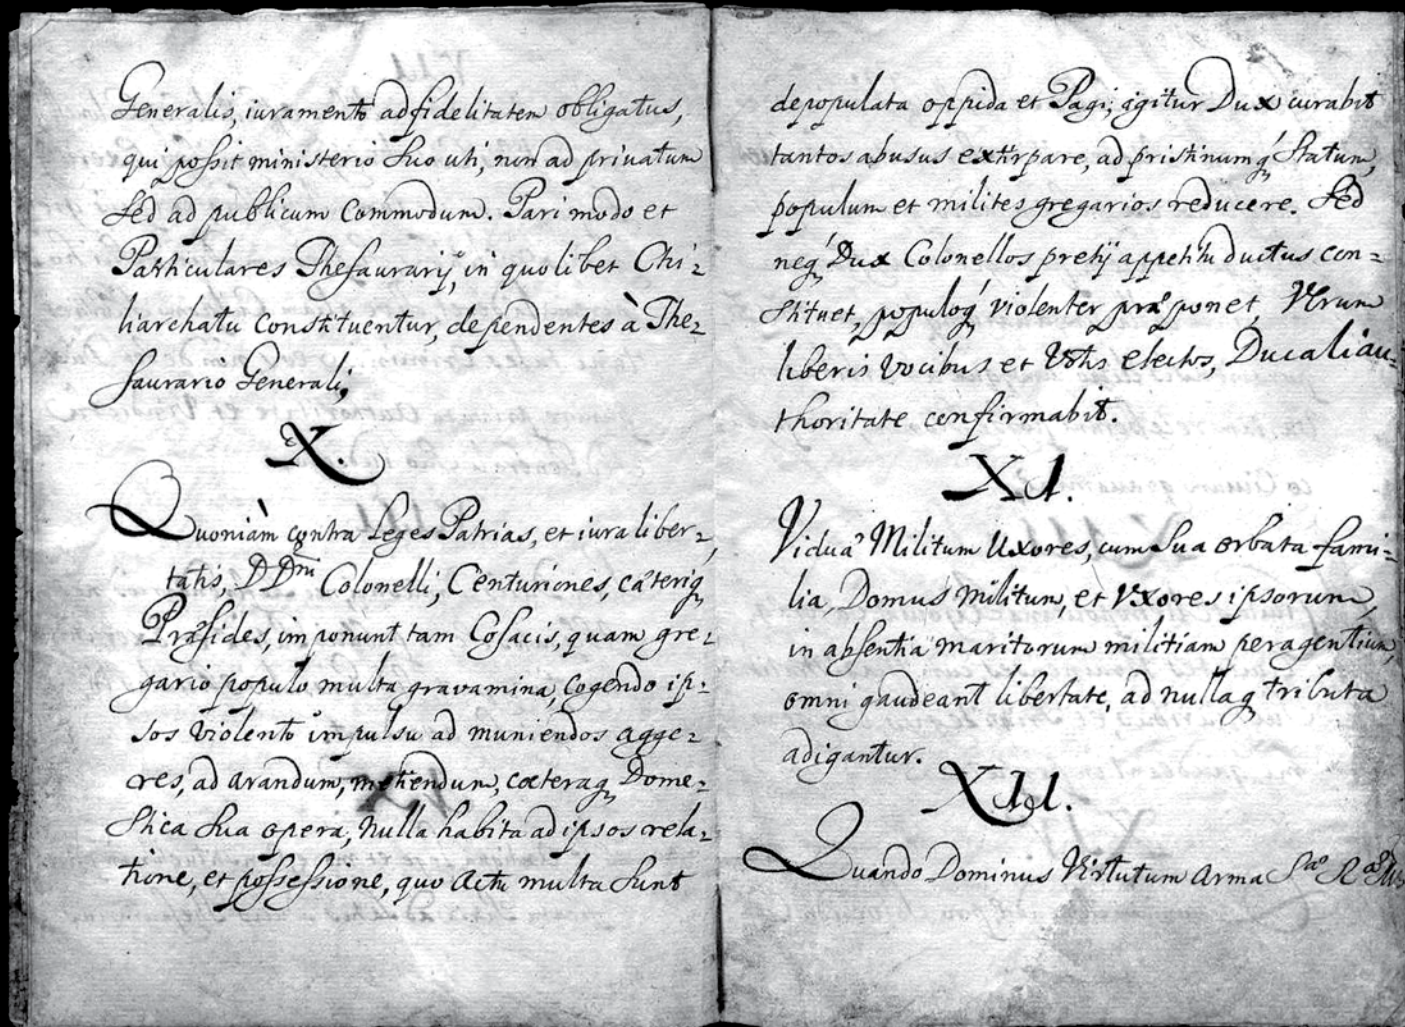 Generalis, iuramento ad fidelitatem obligatus,
qui possit ministerio suo uti, non ad priuatum
sed ad publicum Commodum. Pari modo et
Particulares Thesaurarij, in quolibet Chi=
liarchatu constituentur, dependentes à The=
saurario Generali,
X.
Quoniàm contra Leges Patrias, et iura liber=
tatis, DDni Colonelli, Centuriones, cæteriq
Præsides, imponunt tam Cosacis, quam gre=
gario populo multa gravamina, cogendo ip=
sos violento impulsu ad muniendos agge=
res, ad arandum, metiendum, cæteraq Dome=
stica sua opera, nulla habita ad ipsos rela=
tione, et possessione, quo actu multa sunt
depopulata oppida et Pagi; igitur Dux curabit
tantos abusus extirpare, ad pristinumq Statum,
populum et milites gregarios reducere. Sed
neq Dux Colonellos pretij appetitu ductus con=
stituet, populoq violenter præponet, Verum
liberis vocibus et Votis electos, Ducali au=
thoritate confirmabit.
XI.
Viduæ Militum Uxores, cum sua orbata fami=
lia, Domus Militum, et Vxores ipsorum,
in absentia maritorum militiam peragentium,
omni gaudeant libertate, ad nullaq tributa
adigantur.
XII.
Quando Dominus Virtutum arma Sæ Ræ